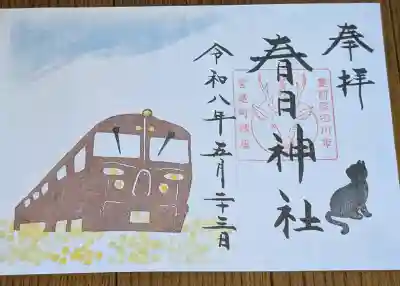 奉拝
春日神社
令和八年五月二十三日
豊前国田川市
宮尾町鎮座